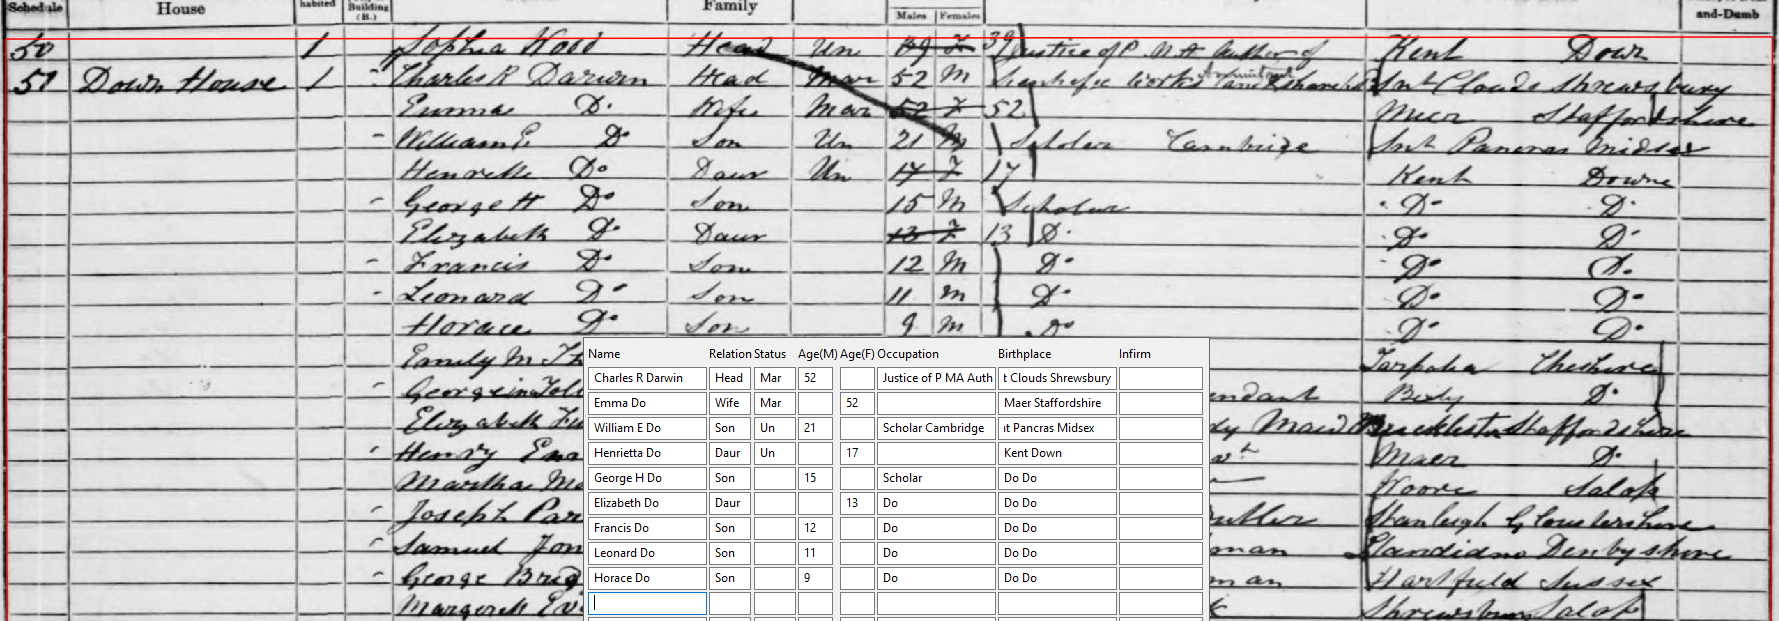 Schedule House habited Building (B.) Family Males Females and-Dumb
50 1 Sophia Head Un 39 F 39 Justice of P. M A Author of Kent Down
51 Down House 1 Charles R Darwin Head Mar 52 M Shrewsbury
Emma Do Wife Mar 52 F 52 Maer Staffordshire
William E. Do Son Un 21 M Scholar Cambridge Snt Pancras Midsex
Do Daur Un 17 F 17 Kent Downe
George H Do Son 15 M Scholar Do Do
Elizabeth Do Daur 13 F 13 Do Do Do
Francis Do Son 12 M Do Do Do
Leonard Do Son 11 M Do Do Do
Horace Do Son 9 M Do Do Do
Name Relation Status Age(M) Age(F) Occupation Birthplace Infirm
Emily M Cheshire
Charles R Darwin Head Mar 52 Justice of P MA Auth t Clouds Shrewsbury
Do
Emma Do Wife Mar 52 Maer Staffordshire
Elizabeth Maid Staffordshire
William E Do Son Un 21 Scholar Cambridge t Pancras Midsex
Henry Maer Do
Henrietta Do Daur Un 17 Kent Down
Martha Woore Salop
George H Do Son 15 Scholar Do Do
Joseph Par
Elizabeth Do Daur 13 Do Do Do
Francis Do Son 12 Do Do Do
Samuel Jon man Denbyshire
Leonard Do Son 11 Do Do Do
George Brid man Hartfield Sussex
Horace Do Son 9 Do Do Do
Margaret Ev Shrewsbury Salop